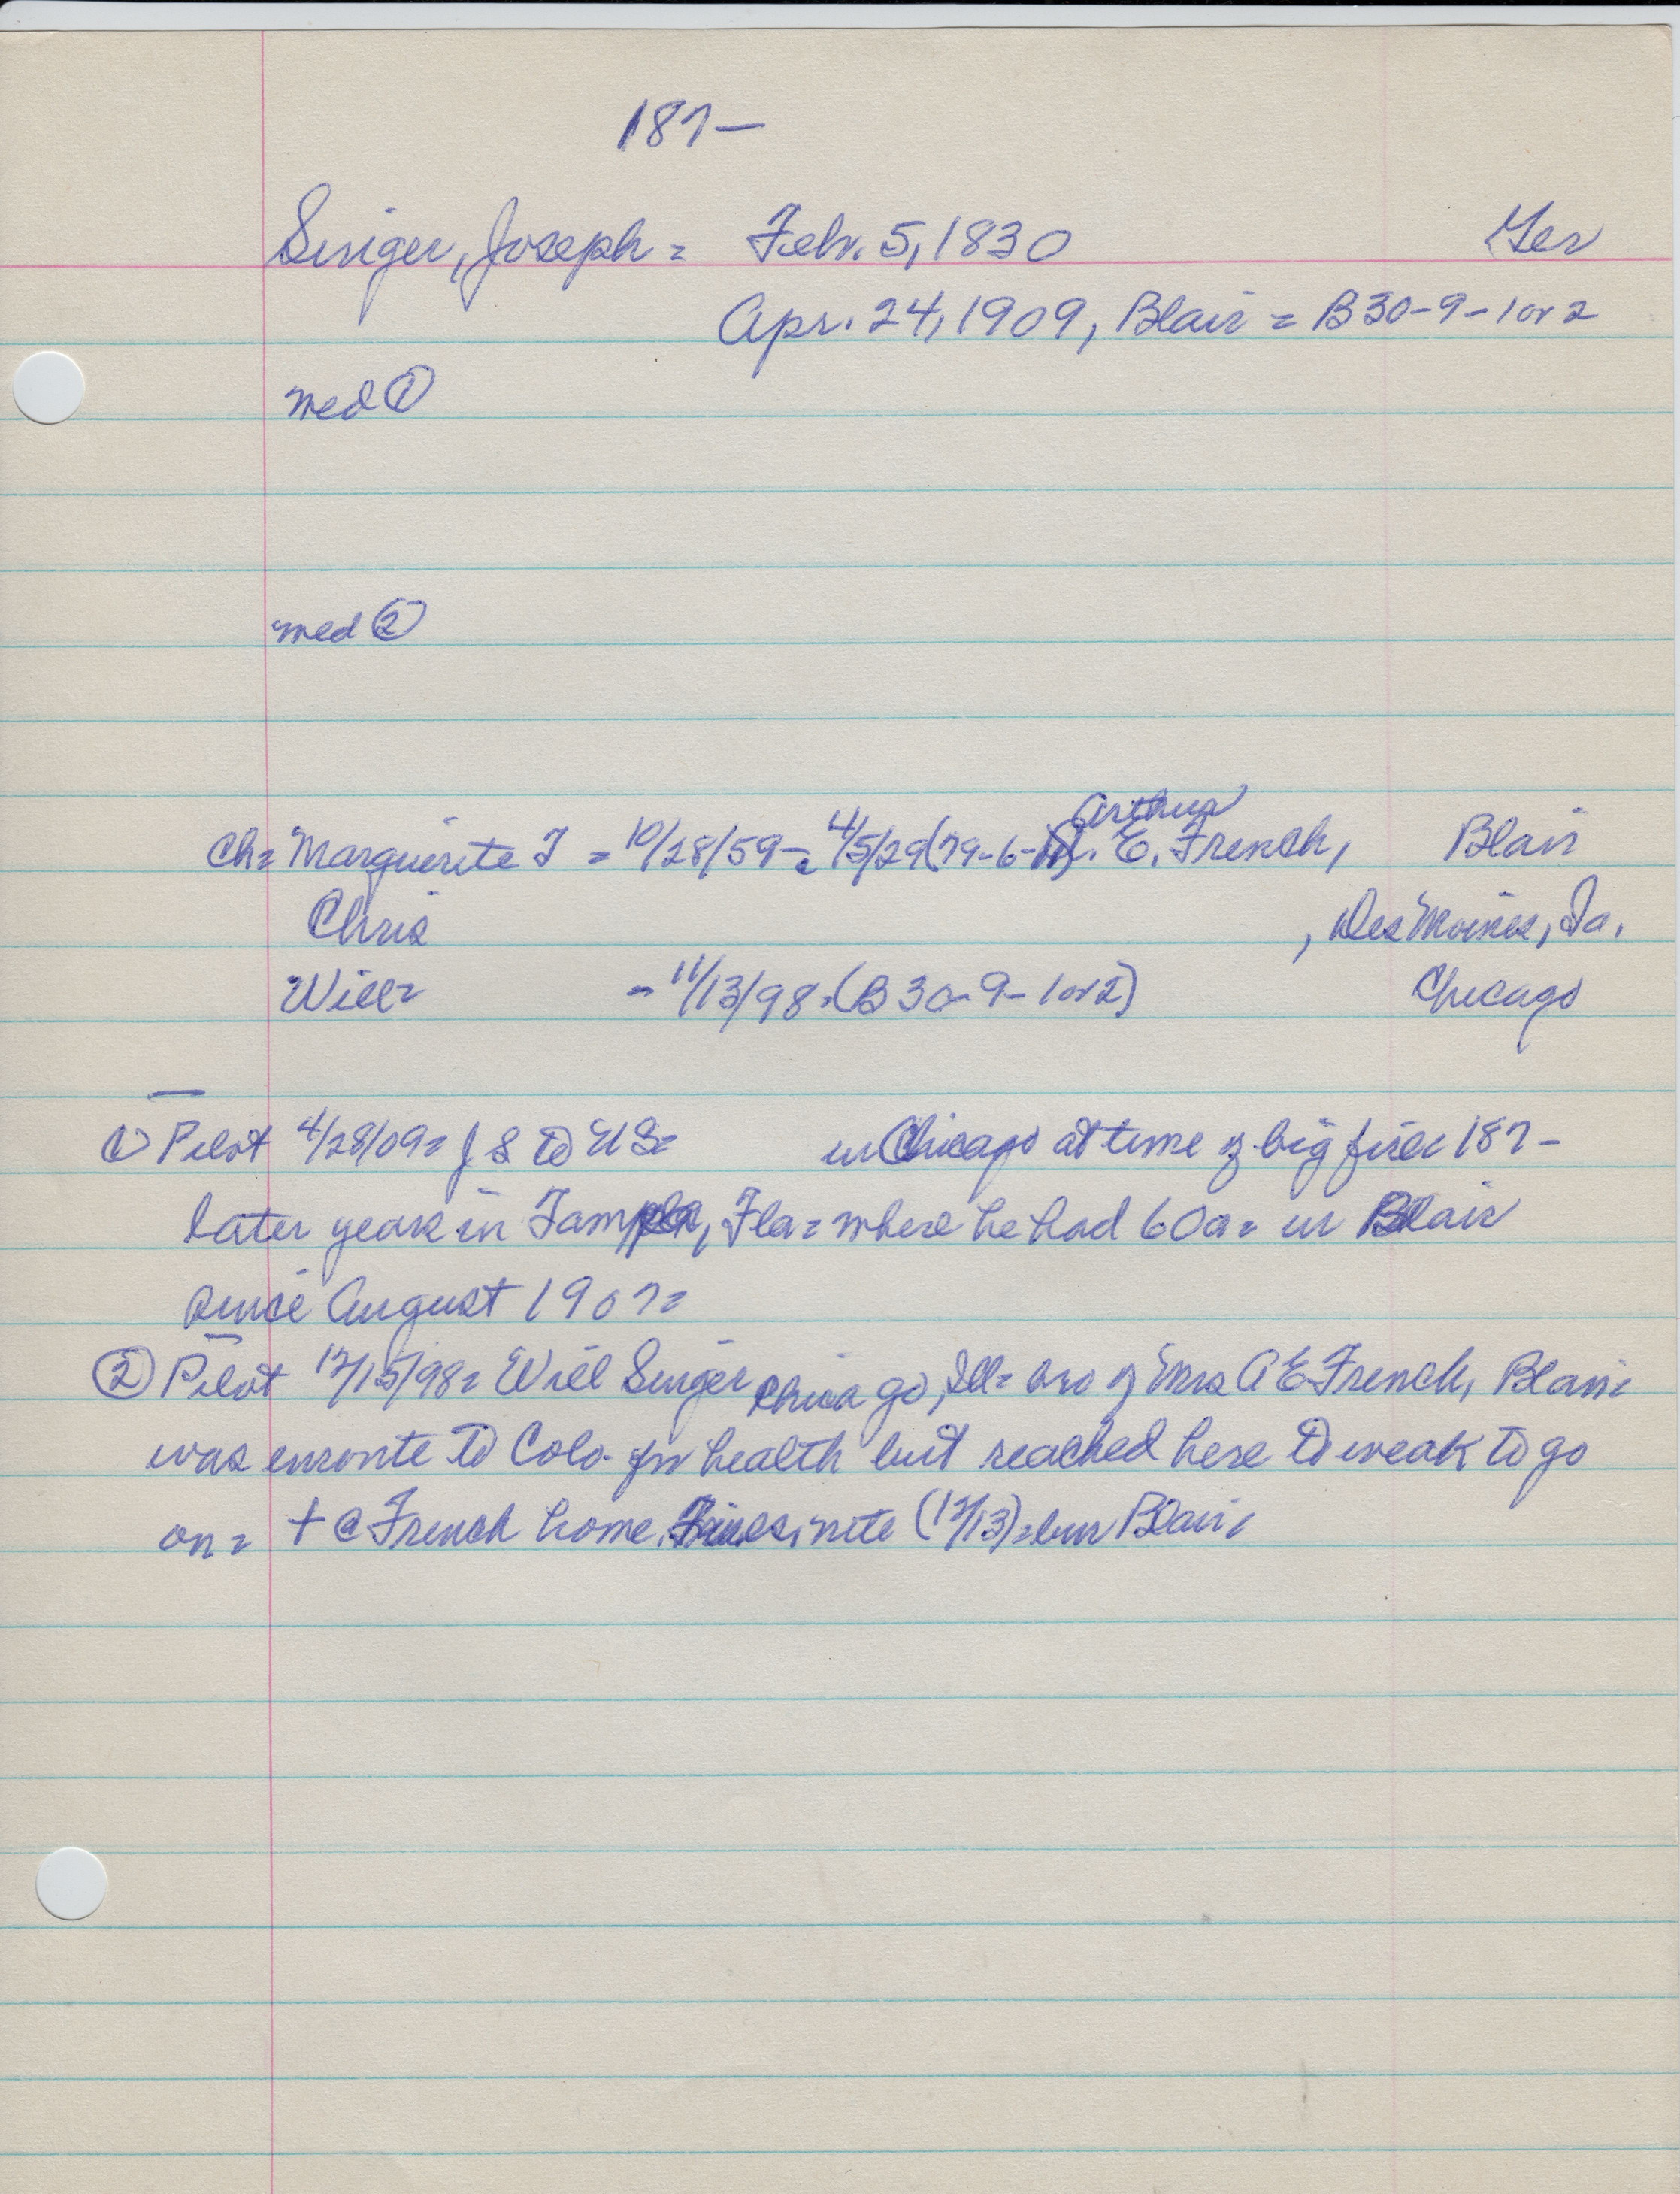 187-
Singer, Joseph = Febr. 5, 1830 Ger
Apr. 24, 1909, Blair = B 30-9-1 or 2
med ①
med ②
Arthur
Ch= Marguerite J = 10/28/59 - 4/5/29 (79-6- E. French, Blair
Chris , Des Moines, Ia.
Will= - 11/13/98. (B 30-9-1 or 2) Chicago
① Pilot 4/28/09= J S to U S= in Chicago at time of big fire= 187-
later years in Tampa, Fla= where he had 60a= in Blair
since August 1907=
② Pilot 12/15/98= Will Singer Chicago, Ill= bro of Mrs A E French, Blair=
was enroute to Colo. for health but reached here to weak to go
on= + @ French home nite (12/13)= bur Blair=